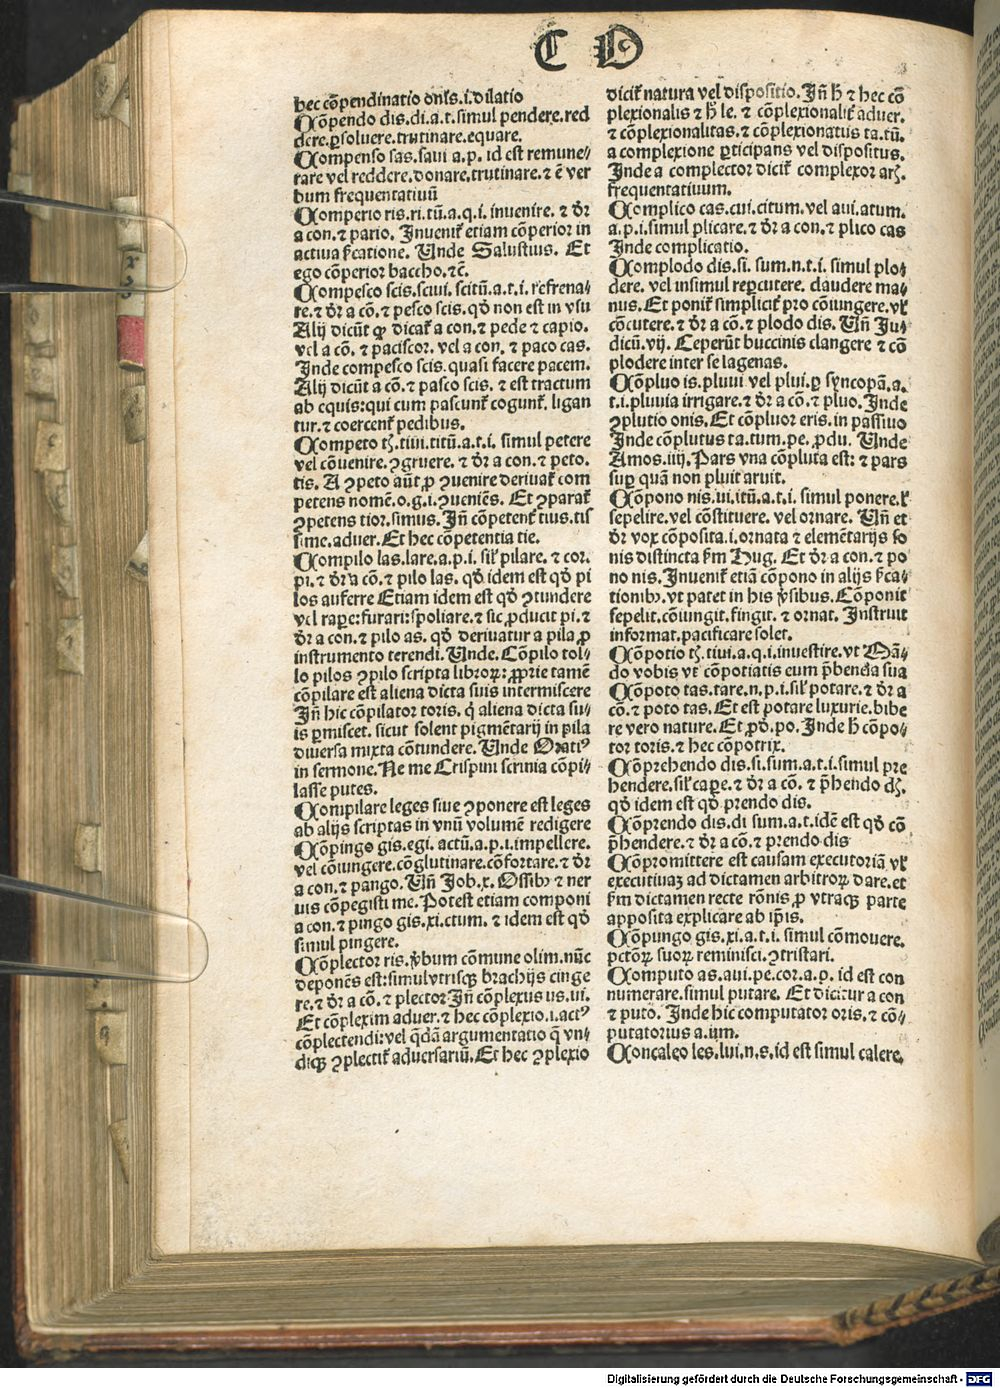 C O
hec cõpendinatio onis.i.dilatio
Cõpendo dis.di.a.t.simul pendere.red
dere.ꝑsoluere.trutinare.equare.
Compenso sas.saui a.p. id est remune⸗
rare vel reddere.donare.trutinare.⁊ ẽ ver
bum frequentatiuũ
Comperio ris.ri.tũ.a.q.i. inuenire. ⁊ dr̃
a con.⁊ pario. Inuenit᷑ etiam cõperior in
actiua s̃catione. Unde Salustius. Et
ego cõperior baccho.⁊c̃.
Compesco scis.scui.scitũ.a.t.i. refrena⸗
re.⁊ dr̃ a cõ.⁊ pesco scis.qđ non est in vsu
Alij dicũt ꝙ dicat᷑ a con.⁊ pede ⁊ capio.
vel a cõ. ⁊ paciscor. vel a con. ⁊ paco cas.
Inde compesco scis.quasi facere pacem.
Alij dicũt a cõ.⁊ pasco scis. ⁊ est tractum
ab equis:qui cum pascunt᷑ cogunt᷑. ligan
tur.⁊ coercent᷑ pedibus.
Competo tꝭ.tiui.titũ.a.t.i. simul petere
vel cõuenire.ꝯgruere.⁊ dr̃ a con.⁊ peto.
tis. A ꝯpeto aũt ꝓ ꝯuenire deriuat᷑ com
petens nomẽ.o.g.i.ꝯueniẽs. Et ꝯparat᷑
ꝯpetens tior.simus. Jñ cõpetent᷑ tius.tis
sime.aduer.Et hec cõpetentia tie.
Compilo las.lare.a.p.i. sił pilare. ⁊ cor.
pi.⁊ dr̃ a cõ.⁊ pilo las. qđ idem est qđ pi
los auferre Etiam idem est qđ ꝯtundere
vel rapere:furari:spoliare.⁊ sic ꝓducit pi.⁊
dr̃ a con.⁊ pilo as. qđ deriuatur a pila ꝓ
instrumento terendi. Unde. Cõpilo tol⸗
lo pilos ꝯpilo scripta libroꝝ: ꝓprie tamẽ
cõpilare est aliena dicta suis intermiscere
Jñ hic cõpilator toris. q̃ aliena dicta su⸗
is ꝑmiscet. sicut solent pigmẽtarij in pila
diuersa mixta cõtundere. Unde Oratiꝰ
in sermone.Ne me Crispini scrinia cõpi⸗
lasse putes.
Compilare leges siue ꝯponere est leges
ab alijs scriptas in vnũ volumẽ redigere
Cõpingo gis.egi. actũ.a.p.i.impellere.
vel cõiungere.cõglutinare.cõfortare.⁊ dr̃
a con.⁊ pango. Uñ Job.x. Ossibꝫ ⁊ ner
uis cõpegisti me. Potest etiam componi
a con.⁊ pingo gis.xi.ctum. ⁊ idem est qđ
simul pingere.
Cõplector ris.ṽbum cõmune olim.nũc
deponẽs est:simul vtrisqꝫ brachijs cinge
re.⁊ dr̃ a cõ.⁊ plector Jñ cõplexus us.ui.
Et cõplexim aduer.⁊ hec cõplexio.i.actꝰ
cõplectendi:vel q̃dã argumentatio q̃ vn⸗
diqꝫ ꝯplectit᷑ aduersariũ. Et hec ꝯplexio
dicit᷑ natura vel dispositio. Jñ h̃ ⁊ hec cõ
plexionalis ⁊ h̃ le. ⁊ cõplexionalit᷑ aduer.
⁊ cõplexionalitas.⁊ cõplexionatus ta.tũ.
a complexione ꝑticipans vel dispositus.
Inde a complector dicit᷑ complexor arꝭ.
frequentatiuum.
Complico cas.cui.citum.vel aui.atum.
a.p.i.simul plicare.⁊ dr̃ a con.⁊ plico cas
Inde complicatio.
Complodo dis.si. sum.n.t.i. simul plo⸗
dere. vel insimul reꝑcutere. claudere ma⸗
nus.Et ponit᷑ simplicit᷑ pro cõiungere.vł
cõcutere.⁊ dr̃ a cõ.⁊ plodo dis. Uñ Ju⸗
dicũ.vij. Ceperũt buccinis clangere ⁊ cõ
plodere inter se lagenas.
Cõpluo is.pluui vel plui.ꝑ syncopã.a.
t.i.pluuia irrigare.⁊ dr̃ a cõ.⁊ pluo. Inde
ꝯplutio onis.Et cõpluor eris.in passiuo
Inde cõplutus ta.tum.pe. ꝓdu. Unde
Amos.iiij.Pars vna cõpluta est: ⁊ pars
suꝑ quã non pluit aruit.
Cõpono nis.ui.itũ.a.t.i. simul ponere.ł
sepelire.vel cõstituere. vel ornare. Uñ et
dr̃ vox cõposita.i.ornata ⁊ elemẽtarijs so
nis distincta s̃m Hug. Et dr̃ a con.⁊ po
no nis. Inuenit᷑ etiã cõpono in alijs s̃ca⸗
tionibꝫ.vt patet in his ṽsibus.Cõponit
sepelit.cõiungit.fingit. ⁊ ornat. Instruit
informat.pacificare solet.
Cõpotio tꝭ.tiui.a.q.i.inuestire.vt Mã⸗
do vobis vt cõpotiatis eum p̃benda sua
Cõpoto tas.tare.n.p.i.sił potare.⁊ dr̃ a
cõ.⁊ poto tas.Et est potare luxurie.bibe
re vero nature.Et ꝓđ.po. Inde h̃ cõpo⸗
tor toris.⁊ hec cõpotrix.
Cõprehendo dis.si.sum.a.t.i.simul pre
hendere.sił caꝑe.⁊ dr̃ a cõ. ⁊ p̃hendo dꝭ.
qđ idem est qđ prendo dis.
Cõprendo dis.di sum.a.t.idẽ est qđ cõ
p̃hendere.⁊ dr̃ a cõ.⁊ prendo dis
Cõpromittere est causam executoriã vł
executiuaꝫ ad dictamen arbitroꝝ dare.et
s̃m dictamen recte rõnis ꝓ vtraqꝫ parte
apposita explicare ab ip̃is.
Cõpungo gis.xi.a.t.i. simul cõmouere.
pctõꝝ suoꝝ reminisci.ꝯtristari.
Computo as.aui.pe.cor.a.p. id est con
numerare.simul putare. Et dicitur a con
⁊ puto. Inde hic computator oris.⁊ cõ⸗
putatorius a.um.
Concaleo les.lui.n.s.id est simul calere.
Digitalisierung gefördert durch die Deutsche Forschungsgemeinschaft - DFG